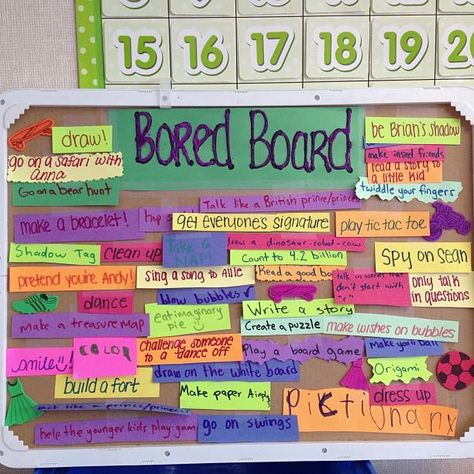 15 16 17 18 19 20
Bored Board
draw!
be Brian's shadow
go on a safari with
anna
make insect friends
read a story to
a little kid
Go on a bear hunt
twiddle your fingers
Talk like a British prince/princess
make a bracelet!
hop
get everyone's signature
play tic tac toe
Shadow Tag
clean up
Take a
NAP!
draw a dinosaur-robot-cow
Count to 4.2 billion
SPY on SEAN
pretend you're Andy!
sing a song to Allie
Read a good book
talk in words that
don't start with
"r"
only talk
in questions
dance
Blow bubbles
Write a story
make a treasure map
eat imaginary
pie
Create a puzzle
make wishes on bubbles
smile
COLOR
challenge someone
to a dance off
Play a board game
Make your own
build a fort
draw on the white board
Origami
act like a prince/princess
Make paper
Pictionary
dress up
help the younger kids play games
go on swings